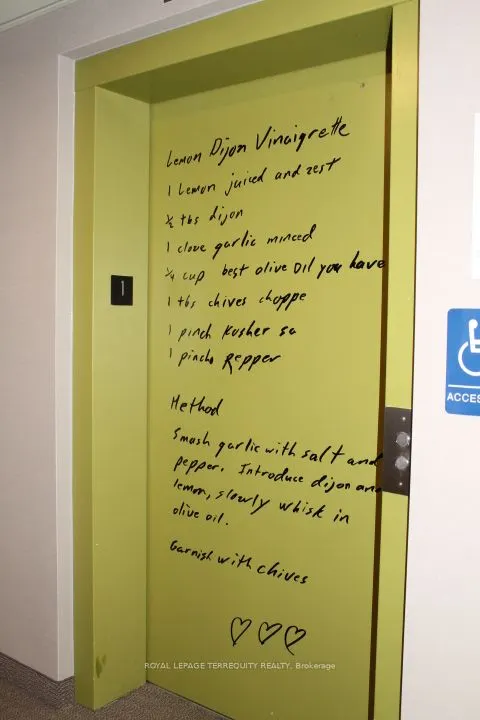 Lemon Dijon Vinaigrette
1 Lemon juiced and zest
½ tbs dijon
1 clove garlic minced
¼ cup best olive oil you have
1 tbs chives choppe
1 pinch Kosher sa
1 pinch pepper
1
Method
Smash garlic with salt and
pepper. Introduce dijon and
lemon, slowly whisk in
olive oil.
Garnish with chives
ACCES
ROYAL LEPAGE TERREQUITY REALTY, Brokerage